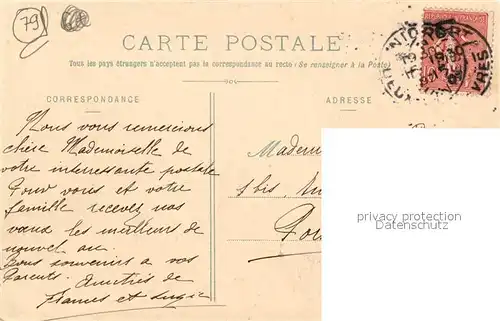 79
CARTE POSTALE
Tous les pays étrangers n'acceptent pas la correspondance au recto (Se renseigner à la Poste)
CORRESPONDANCE
ADRESSE
Nous vous remercions
chère Mademoiselle de
votre interressante postale
Pour vous et votre
famille recevez nos
vœux les meilleurs de
nouvel an.
Bons souvenirs a vos
Parents. Amitiés de
et
Madem
5 bis,
privacy protection
Datenschutz
NIORT